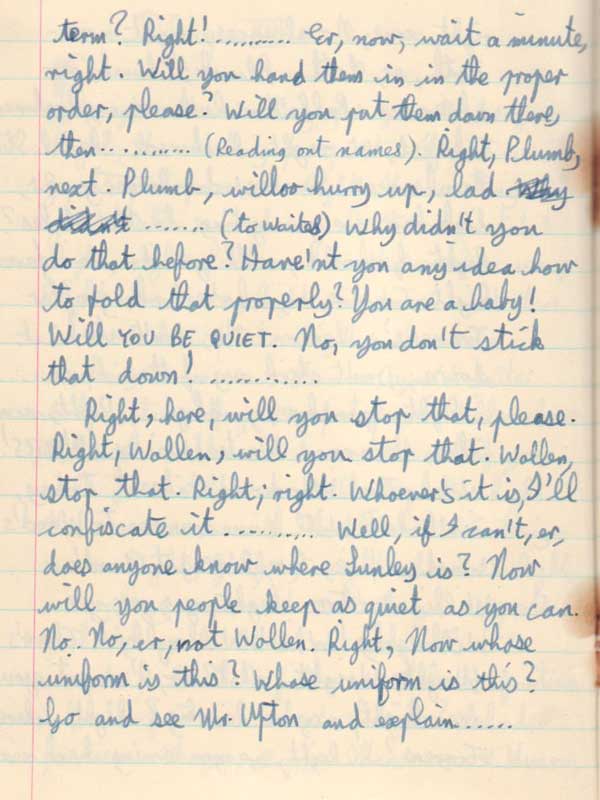 term? Right! .......... Er, now, wait a minute,
right. Will you hand them in in the proper
order, please? Will you put them down there,
then............ (Reading out names). Right, Plumb,
next. Plumb, willoo hurry up, lad Why
didn't ....... (to Waites) Why didn't you
do that before? Have'nt you any idea how
to fold that properly? You are a baby!
Will YOU BE QUIET. No, you don't stick
that down! ............
Right, here, will you stop that, please.
Right, Wollen, will you stop that. Wollen,
stop that. Right; right. Whoever's it is, I'll
confiscate it .......... Well, if I can't, er,
does anyone know where Lunley is? Now
will you people keep as quiet as you can.
No. No, er, not Wollen. Right, Now whose
uniform is this? Whose uniform is this?
Go and see Mr. Upton and explain......